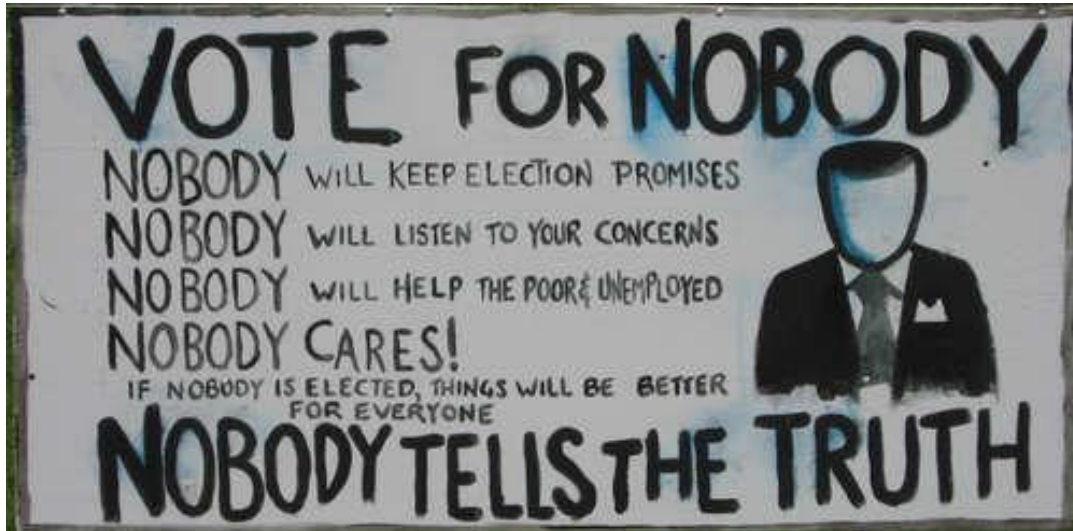 VOTE FOR NOBODY
NOBODY WILL KEEP ELECTION PROMISES
NOBODY WILL LISTEN TO YOUR CONCERNS
NOBODY WILL HELP THE POOR & UNEMPLOYED
NOBODY CARES!
IF NOBODY IS ELECTED, THINGS WILL BE BETTER
FOR EVERYONE
NOBODY TELLS THE TRUTH